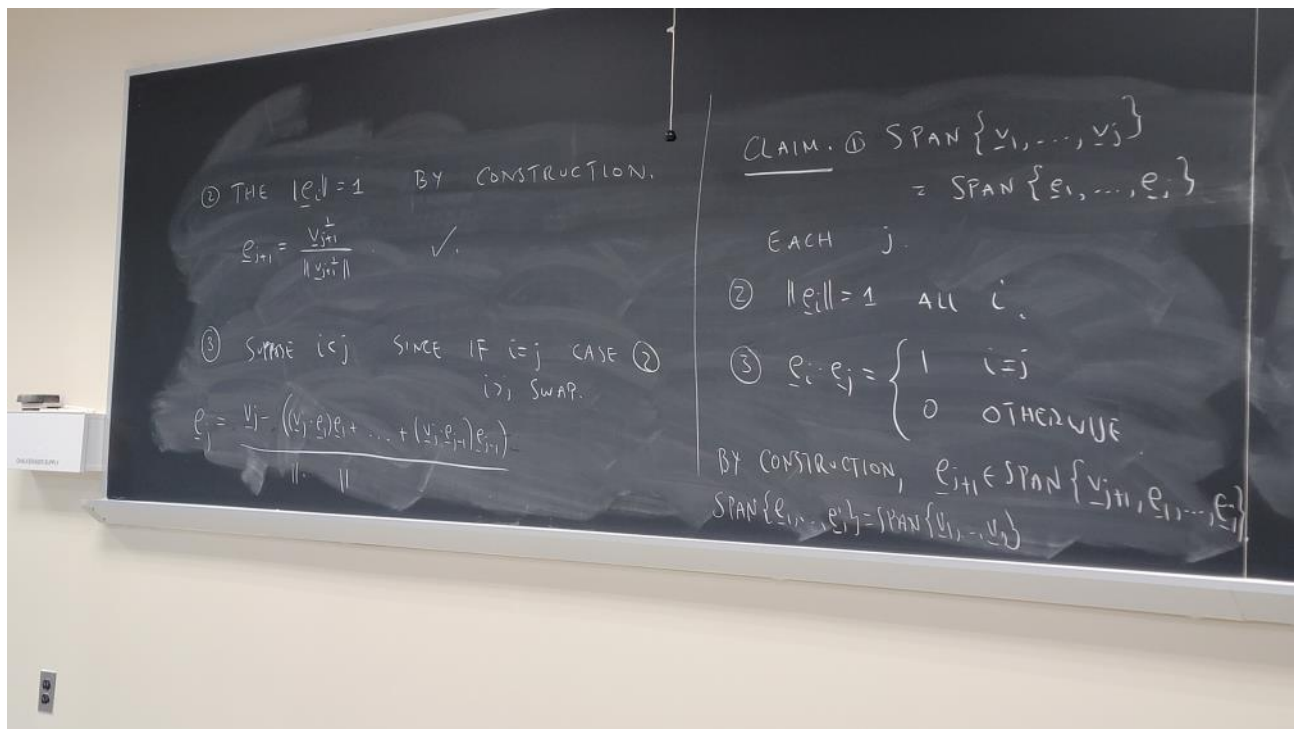 ② THE ‖e̲ᵢ‖ = 1 BY CONSTRUCTION.
e̲ⱼ₊₁ = v̲ⱼ₊₁^⊥ / ‖v̲ⱼ₊₁^⊥‖ . ✓.
③ SUPPOSE i<j SINCE IF i=j CASE ②
i>j SWAP.
e̲ⱼ = v̲ⱼ - ((v̲ⱼ·e̲₁)e̲₁ + ... + (v̲ⱼ·e̲ⱼ₋₁)e̲ⱼ₋₁) / ‖·‖
CLAIM. ① SPAN{v̲₁, ..., v̲ⱼ}
= SPAN{e̲₁, ..., e̲ⱼ}
EACH j.
② ‖e̲ᵢ‖ = 1 ALL i.
③ e̲ᵢ·e̲ⱼ = { 1 i=j
0 OTHERWISE
BY CONSTRUCTION, e̲ⱼ₊₁ ∈ SPAN{v̲ⱼ₊₁, e̲₁, ..., e̲ⱼ}
SPAN{e̲₁, .., e̲ⱼ} = SPAN{v̲₁, .., v̲ⱼ}